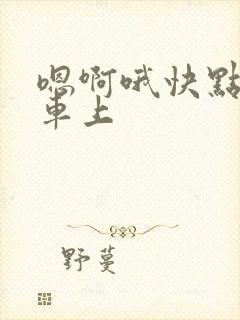 嗯啊哦快點
車上
野蔓